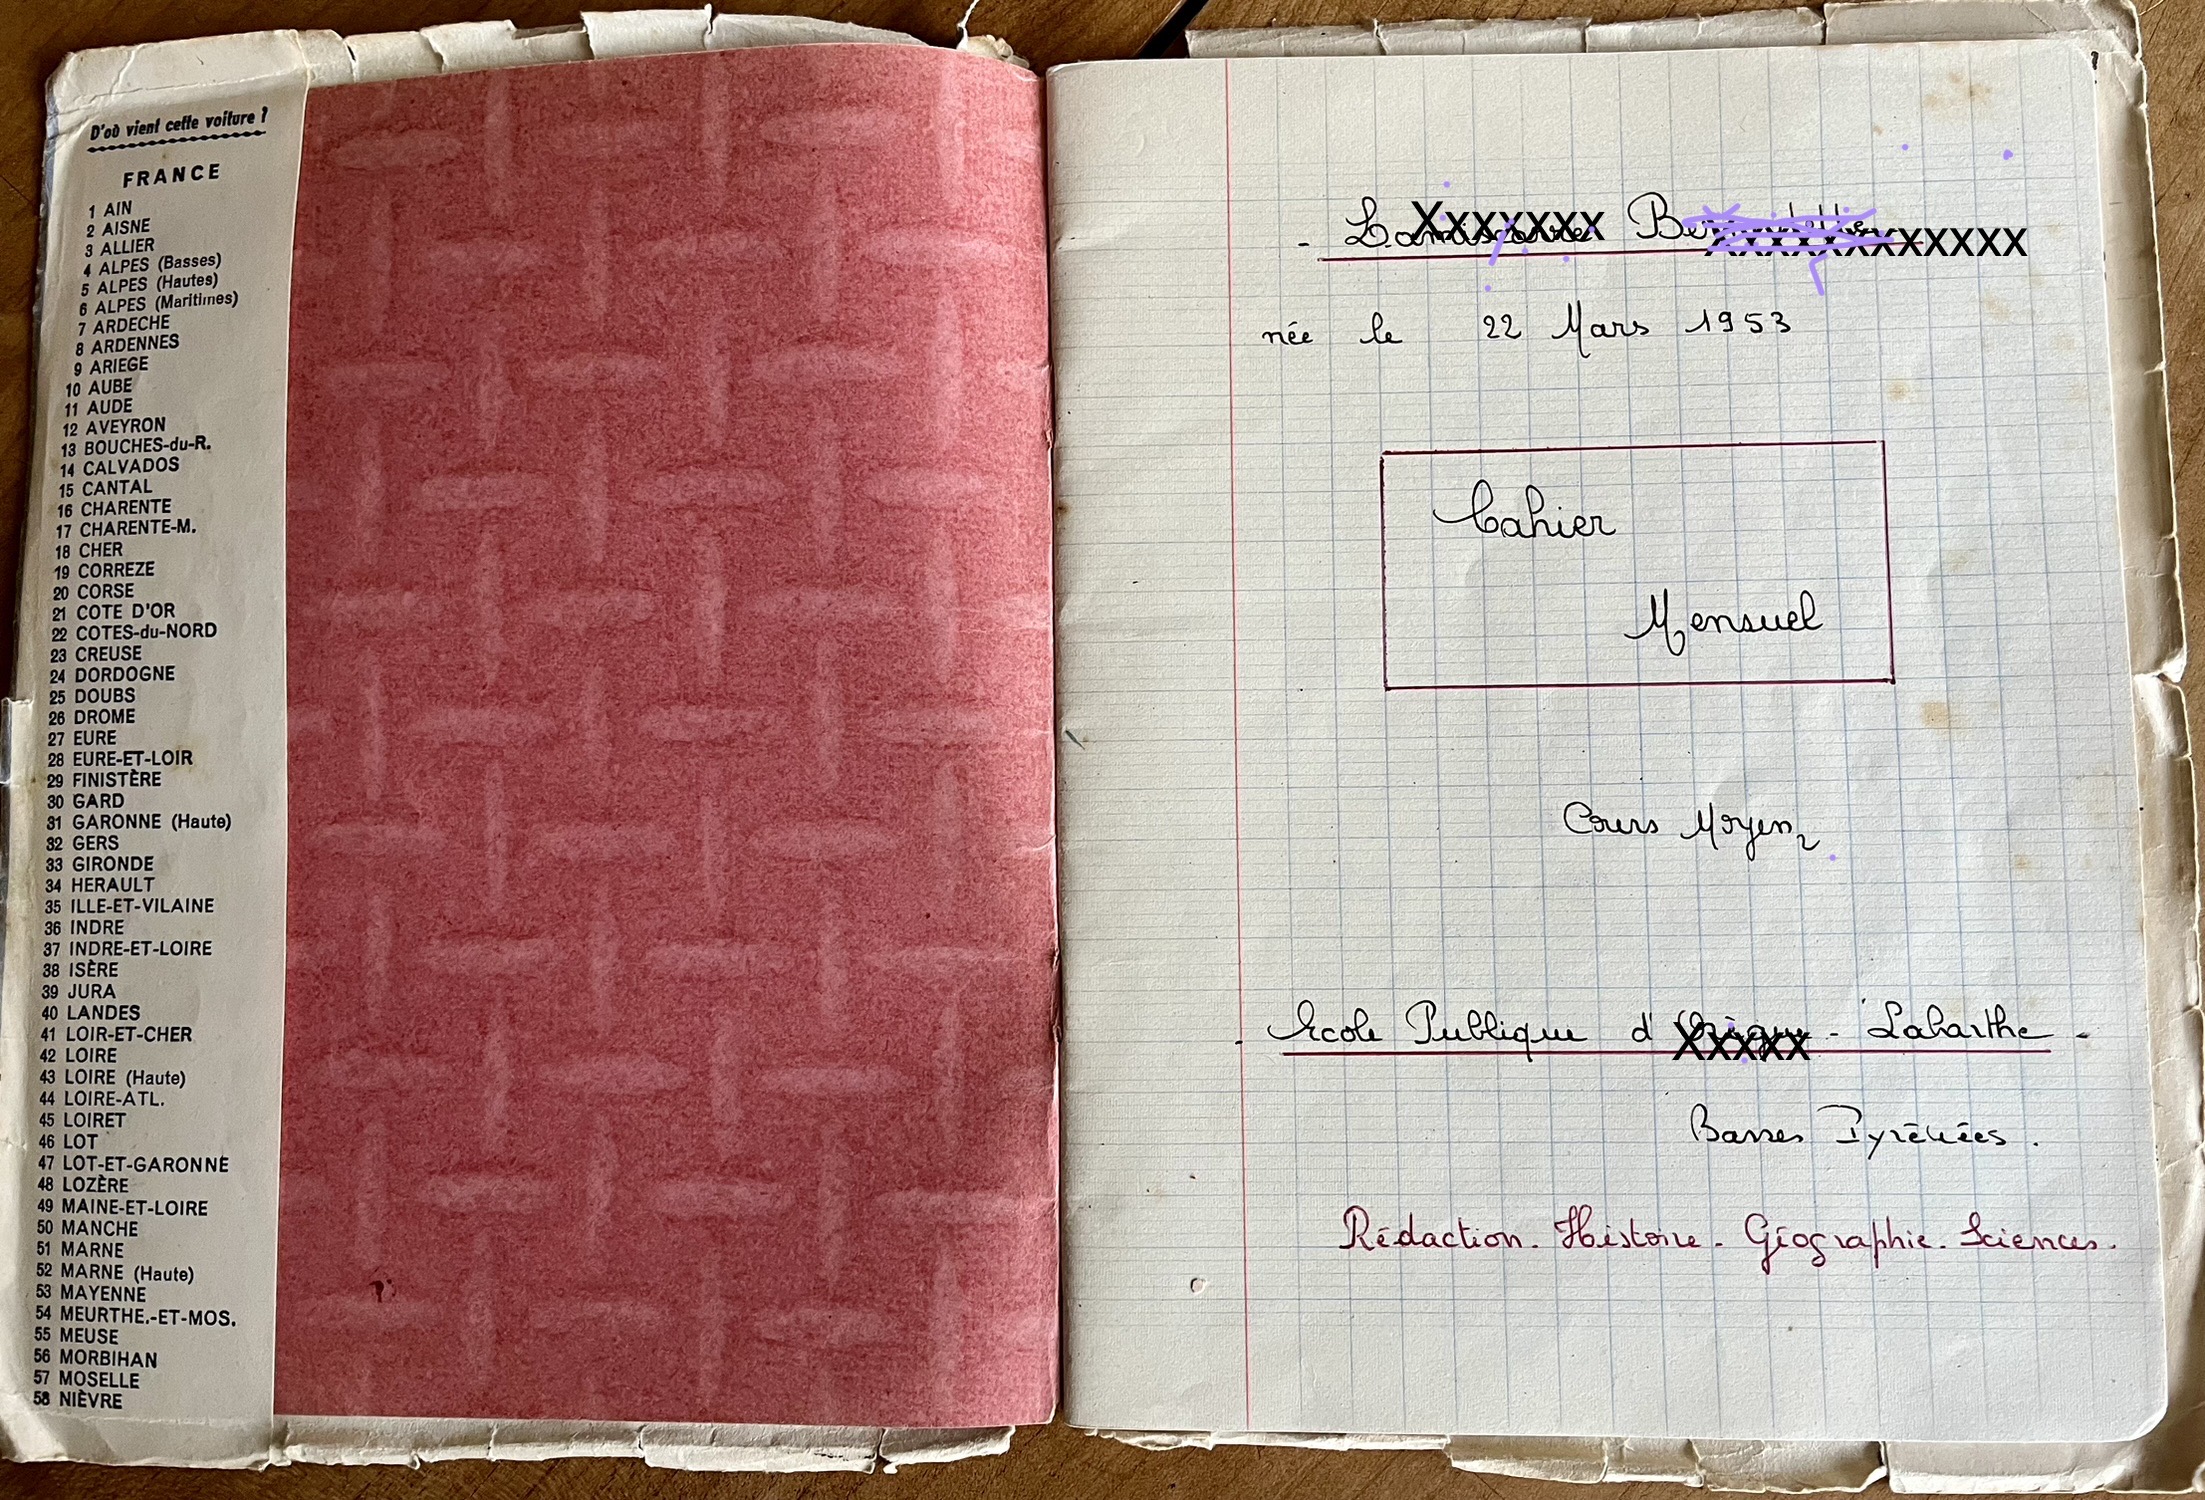 D'où vient cette voiture ?
FRANCE
1 AIN
2 AISNE
3 ALLIER
4 ALPES (Basses)
5 ALPES (Hautes)
6 ALPES (Maritimes)
7 ARDECHE
8 ARDENNES
9 ARIEGE
10 AUBE
11 AUDE
12 AVEYRON
13 BOUCHES-du-R.
14 CALVADOS
15 CANTAL
16 CHARENTE
17 CHARENTE-M.
18 CHER
19 CORREZE
20 CORSE
21 COTE D'OR
22 COTES-du-NORD
23 CREUSE
24 DORDOGNE
25 DOUBS
26 DROME
27 EURE
28 EURE-ET-LOIR
29 FINISTÈRE
30 GARD
31 GARONNE (Haute)
32 GERS
33 GIRONDE
34 HERAULT
35 ILLE-ET-VILAINE
36 INDRE
37 INDRE-ET-LOIRE
38 ISÈRE
39 JURA
40 LANDES
41 LOIR-ET-CHER
42 LOIRE
43 LOIRE (Haute)
44 LOIRE-ATL.
45 LOIRET
46 LOT
47 LOT-ET-GARONNE
48 LOZÈRE
49 MAINE-ET-LOIRE
50 MANCHE
51 MARNE
52 MARNE (Haute)
53 MAYENNE
54 MEURTHE.-ET-MOS.
55 MEUSE
56 MORBIHAN
57 MOSELLE
58 NIÈVRE
née le 22 Mars 1953
Cahier
Mensuel
Cours Moyen 2
- Ecole Publique d' - Labarthe -
Basses Pyrénées.
Rédaction. Histoire - Géographie. Sciences.